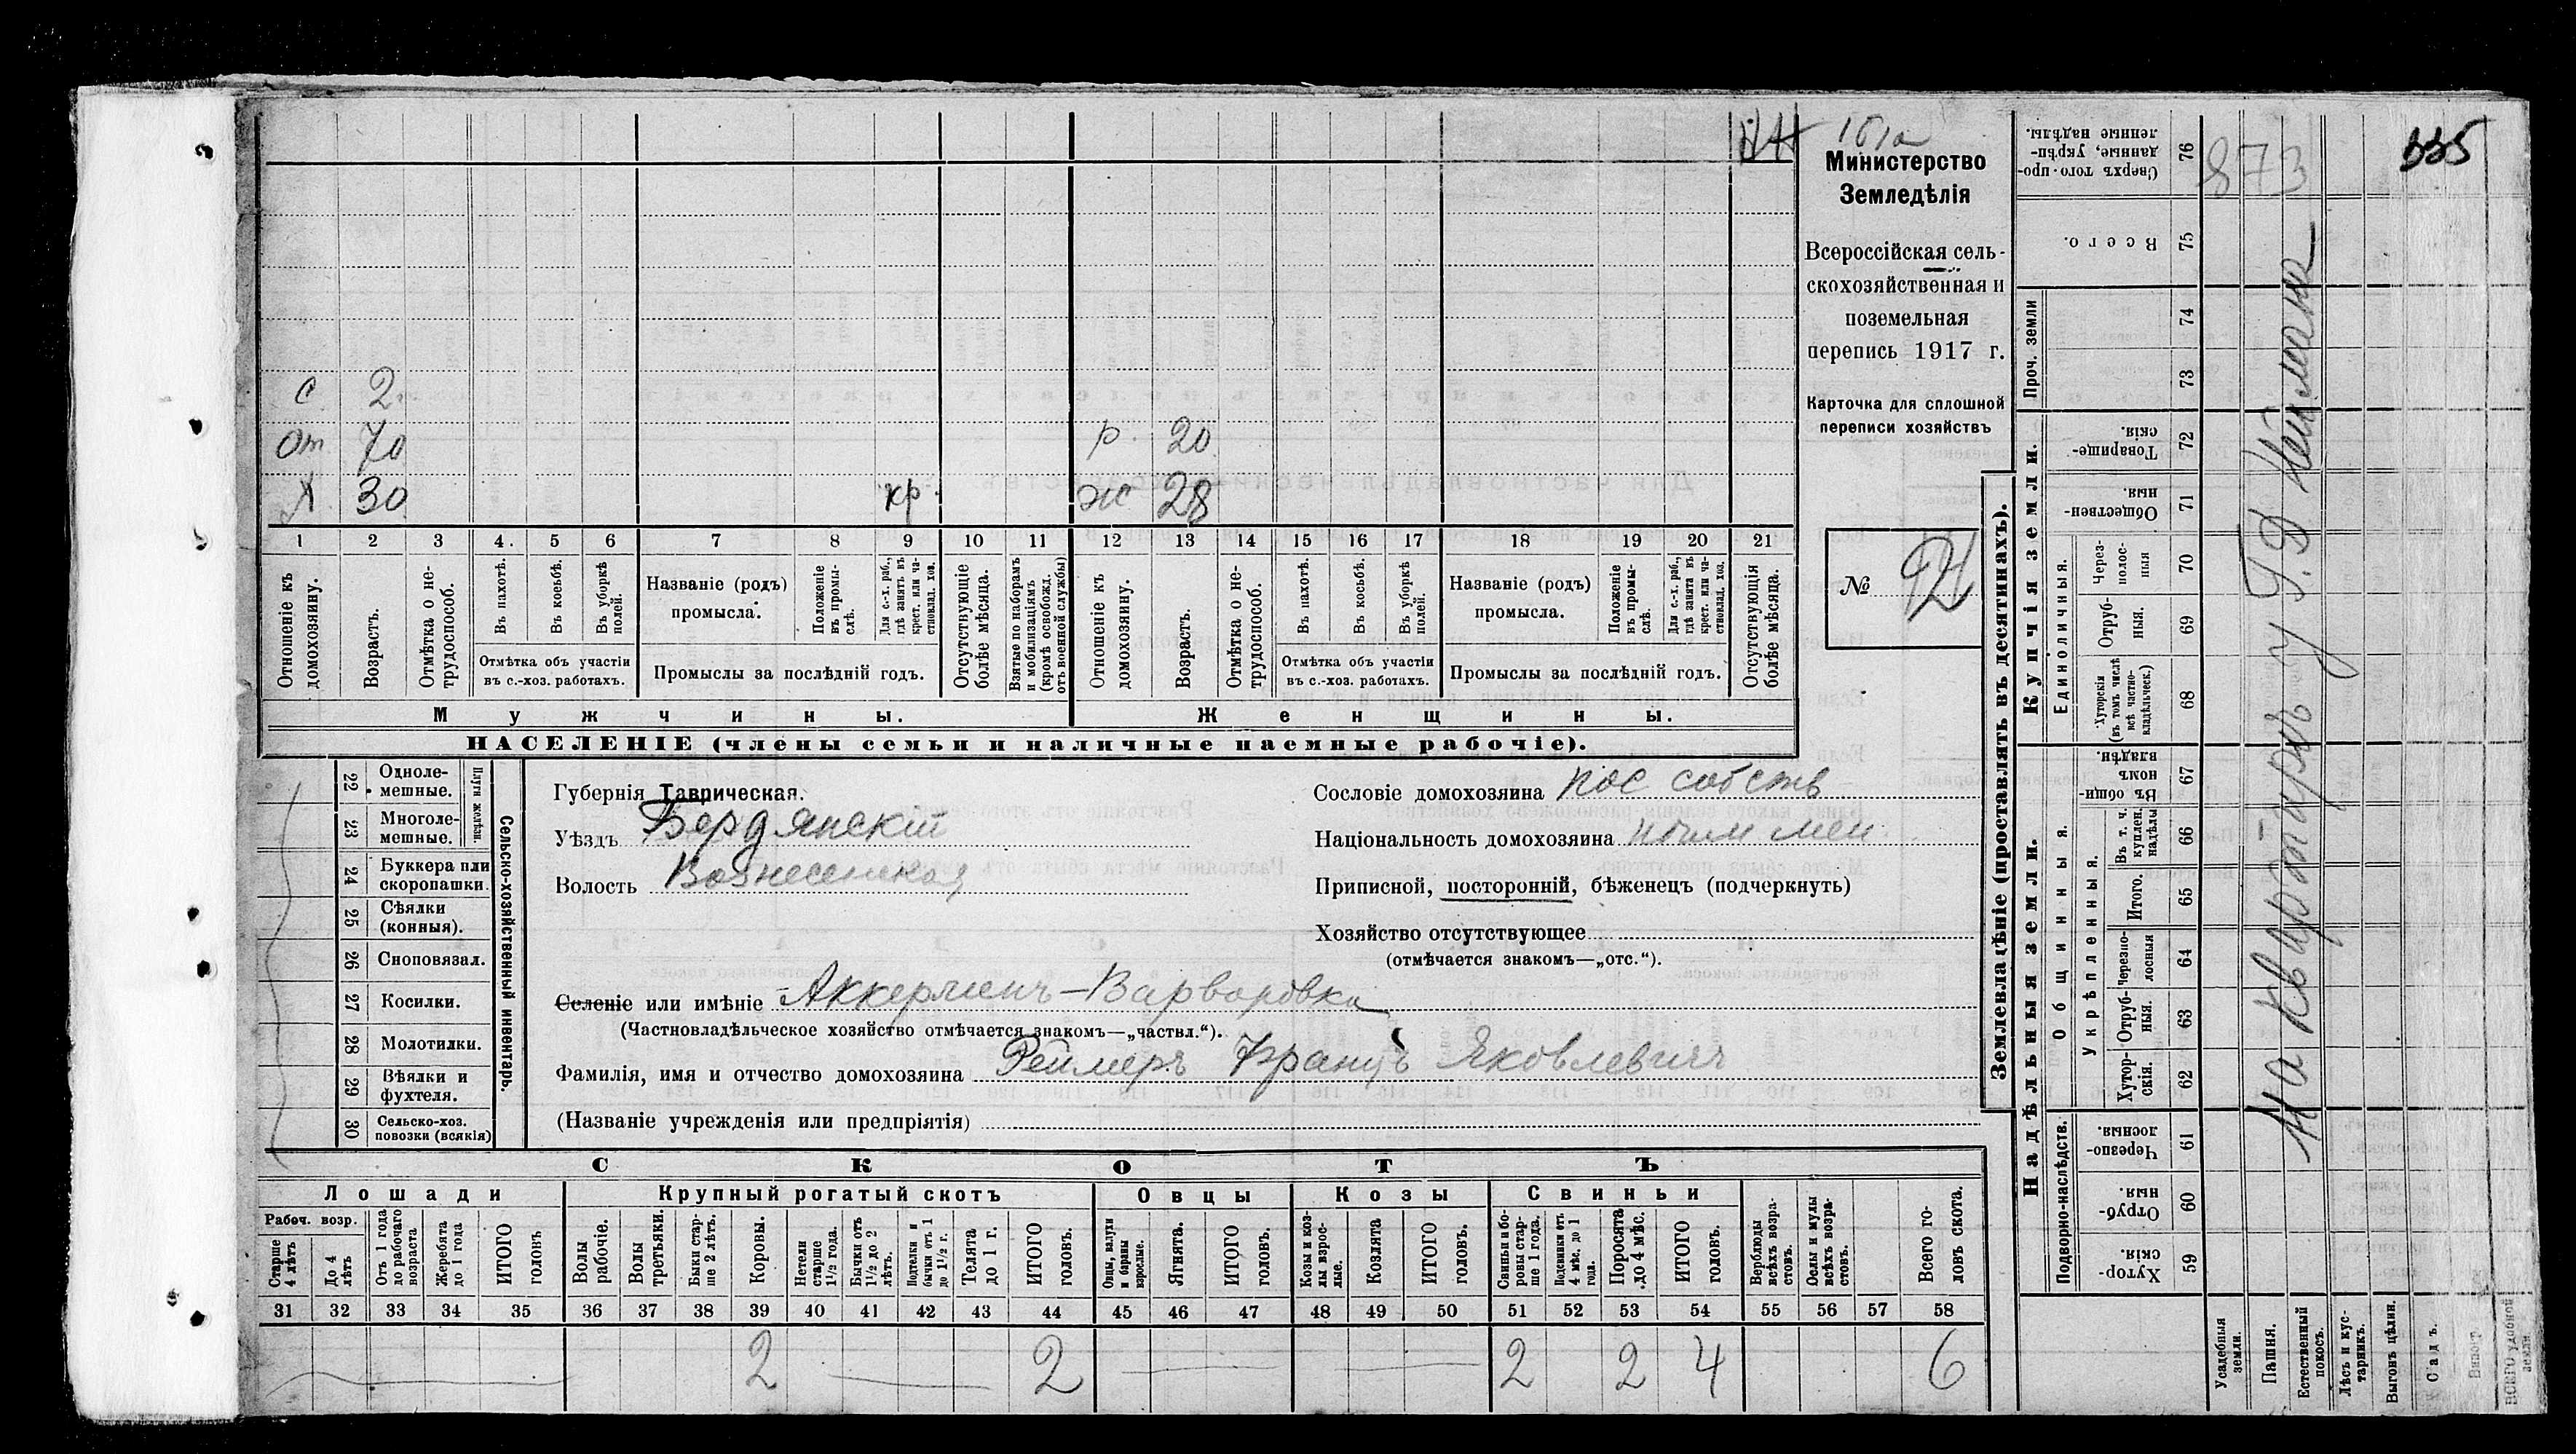 161а
335
873
Министерство
Земледѣлія
Всероссійская сель-
скохозяйственная и
поземельная
перепись 1917 г.
Карточка для сплошной
переписи хозяйствъ
№ 92
с 2
От 70 р. 20
Х 30 кр. ж 28
1 2 3 4. 5 6 7 8 9 10 11 12 13 14 15 16 17 18 19 20 21
Отношеніе къ домохозяину.
Возрастъ.
Отмѣтка о не-трудоспособ.
Въ пахотѣ.
Въ косьбѣ.
Въ уборкѣ полей.
Отмѣтка объ участіи
въ с.-хоз. работахъ.
Названіе (родъ)
промысла.
Положеніе въ промы-слѣ.
Для с.-х. раб., гдѣ занятъ въ крест. или ча-стновлад. хоз.
Промыслы за послѣдній годъ.
Отсутствующіе болѣе мѣсяца.
Взятые по наборамъ и мобилизаціямъ (кромѣ освобожд. отъ военной службы)
Отношеніе къ домохозяину.
Возрастъ.
Отмѣтка о не-трудоспособ.
Въ пахотѣ.
Въ косьбѣ.
Въ уборкѣ полей.
Отмѣтка объ участіи
въ с.-хоз. работахъ.
Названіе (родъ)
промысла.
Положеніе въ промы-слѣ.
Для с.-х. раб., гдѣ занята въ крест. или ча-стновлад. хоз.
Промыслы за послѣдній годъ.
Отсутствующія болѣе мѣсяца.
Мужчины. Женщины.
НАСЕЛЕНІЕ (члены семьи и наличные наемные рабочіе).
22 Одноле-мешные.
23 Многоле-мешные.
Плуги желѣзн.
24 Буккера или скоропашки.
25 Сѣялки (конныя).
26 Сноповязал.
27 Косилки.
28 Молотилки.
29 Вѣялки и фухтеля.
30 Сельско-хоз. повозки (всякія)
Сельско-хозяйственный инвентарь.
Губернія Таврическая.
Уѣздъ Бердянскій
Волость Вознесенская
Сословіе домохозяина пос собств
Національность домохозяина
Приписной, посторонній, бѣженецъ (подчеркнуть)
Хозяйство отсутствующее
(отмѣчается знакомъ—„отс.“).
Селеніе или имѣніе Аккерменъ-Варваровка
(Частновладѣльческое хозяйство отмѣчается знакомъ—„частвл.“).
Фамилія, имя и отчество домохозяина Реймеръ Францъ Яковлевичъ
(Названіе учрежденія или предпріятія)
СКОТЪ
Лошади Крупный рогатый скотъ Овцы Козы Свиньи
Рабоч. возр.
Старше 4 лѣтъ
До 4 лѣтъ
Отъ 1 года до рабочаго возраста
Жеребята до 1 года
ИТОГО головъ
Волы рабочіе.
Волы третьяки.
Быки стар-ше 2 лѣтъ.
Коровы.
Нетели старше 1½ года.
Бычки отъ 1½ до 2 лѣтъ.
Подтелки и бычки отъ 1 до 1½ г.
Телята до 1 г.
ИТОГО головъ.
Овцы, валухи и бараны взрослые.
Ягнята.
ИТОГО головъ.
Козы и коз-лы взрос-лые.
Козлята
ИТОГО головъ.
Свиньи и бо-ровы стар-ше 1 года.
Подсвинки отъ 4 мѣс. до 1 года.
Поросята до 4 мѣс.
ИТОГО головъ.
Верблюды всѣхъ возра-стовъ.
Ослы и мулы всѣхъ возра-стовъ.
Всего го-ловъ скота.
31 32 33 34 35 36 37 38 39 40 41 42 43 44 45 46 47 48 49 50 51 52 53 54 55 56 57 58
2 2 2 2 4 6
Землевладѣніе (проставлять въ десятинахъ).
Надѣльныя земли. Купчія земли. Проч. земли
Подворно-наслѣдств.
Общинныя.
Укрѣпленныя.
Единоличныя.
59 Хутор-скія.
60 Отруб-ныя.
61 Черезпо-лосныя.
62 Хутор-скія.
63 Отруб-ныя.
64 Черезпо-лосныя
65 Итого.
66 Въ т. ч. куплен. надѣлы
67 Въ общи-номъ владѣн.
68 Хуторскія (въ томъ числѣ всѣ частно-владѣльческ.)
69 Отруб-ныя.
70 Через-полос-ныя
71 Обществен-ныя.
72 Товарище-скія.
73
74
75 Всего.
76 Сверхъ того. про-данные, укрѣп-ленные надѣлы.
Усадебныя земли.
Пашня.
Естественный покосъ.
Лѣсъ и кус-тарникъ.
Выгонъ цѣлин.
Садъ.
Виногр.
ВСЕГО удобной земли.
На квартиръ у Г. Д Неймана